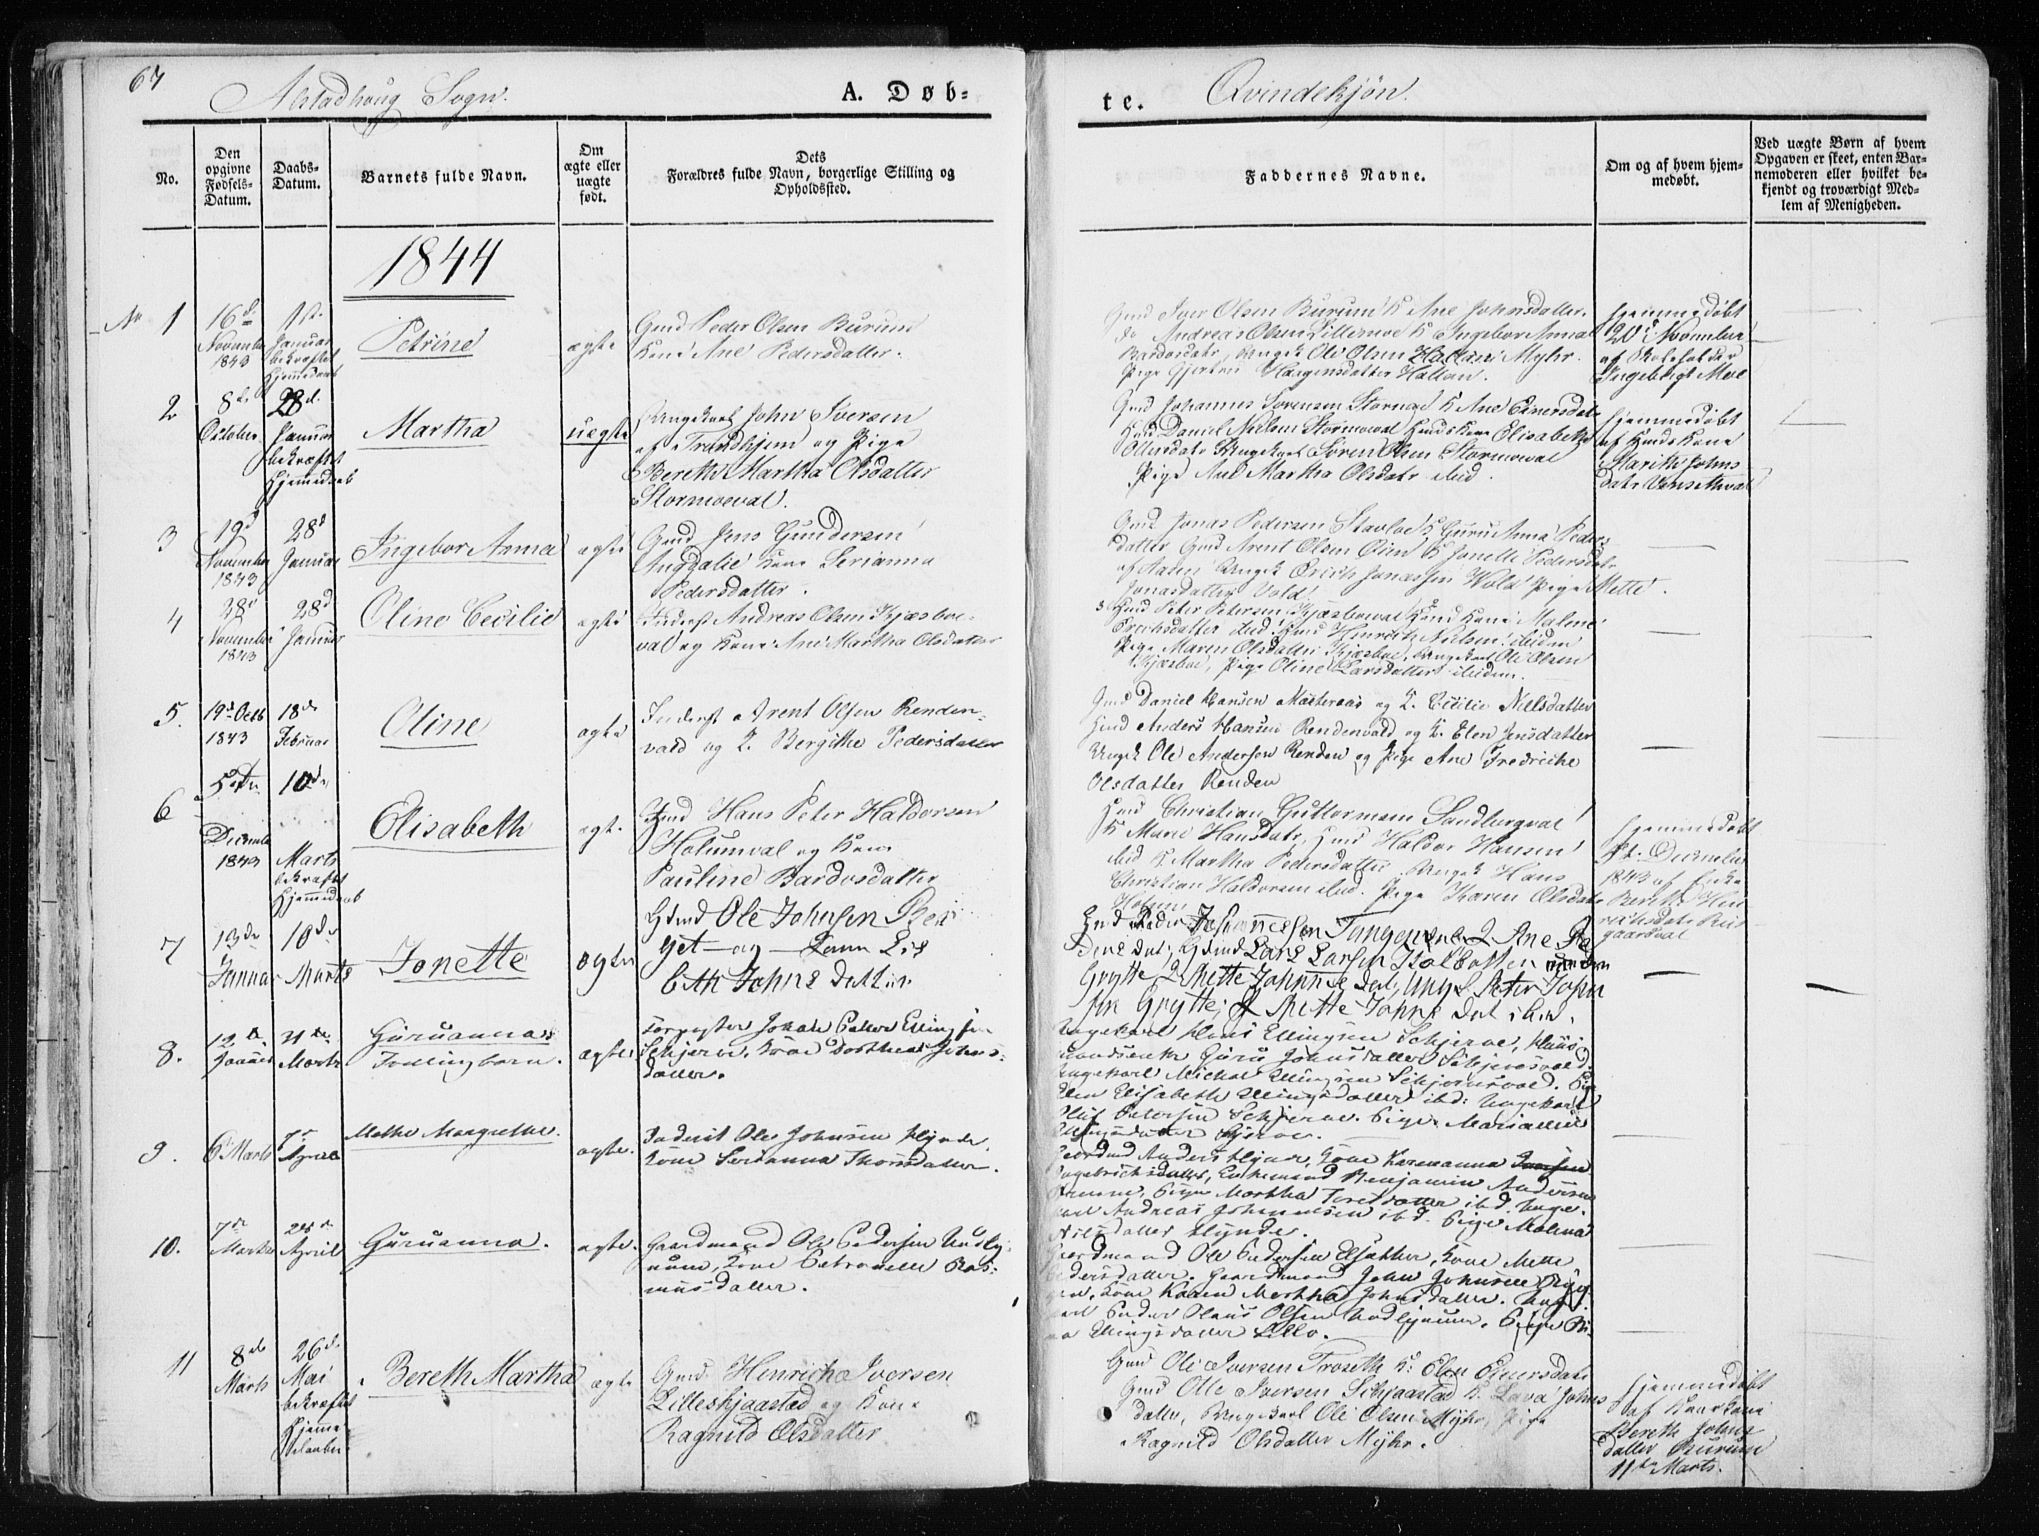 67
Alstadhoug Sogn.
A. Døb-
te.
Qvindekjøn.
No.
Den opgivne Fødsels-Datum.
Daabs-Datum.
Barnets fulde Navn.
Om ægte eller uægte født.
Dets
Forældres fulde Navn, borgerlige Stilling og
Opholdssted.
Faddernes Navne.
Om og af hvem hjem-
medøbt.
Ved uægte Børn af hvem
Opgaven er skeet, enten Bar-
nemoderen eller hvilket be-
kjendt og troværdigt Med-
lem af Menigheden.
1844
No 1
16d
November
1843
1st
Januar
bekræftet
Hjemmedaab
Petrine
ægte
Gmd Peder Olsen Burum
Kone Ane Pedersdatter.
Gmd Iver Olsen Burum K Ane Johnsdatter.
do Andreas Olsen Lillemoe K Ingebor Anna
Bardosdatr, Ungk Ole Olsen Hallan Myhr.
Pige Gjertru Haagensdatter Hallan.
hjemmedøbt
20d November
af Skoleholder
Ingebrigt Moe
2
8de
October
28d
Januar
bekræftet
Hjemmedaab
Martha
uægte
Ungkarl John Iversen
af Trondhjem og Pige
Bereth Martha Olsdatter
Stormoeval.
Gmd Johannes Sorensen Stormoe K Ane Einersdatr
Hmd Daniel Nielsen Stormoeval Hmds Kone Elisabeth
Olinsdatr Ungkarl Soren Olsen Stormoeval
Pige Ane Martha Olsdatr ibid.
hjemmedøbt
af Hmds Kone
Marith Johns
datr Venseth val
3
19d
November
1843
28d
Januar
Ingebor Anna
ægte
Gmd Jens Gundersen
Augdalie Kone Serianna
Pedersdatter.
Gmd Jonas Pedersen Stavloe K Guru Anna Peders
datter Gmd Arent Olsen Oien K Jonette Pedersdatr
af Aasen Ungk Erich Jonassen Wold Pige Mette
Jonasdatter Vold.
4
28d
November
1843
28d
Januar
Oline Cecilie
ægte
Inderst Andreas Olsen Kjæsboe-
val og Kone Ane Martha Olsdatter
Hmd Peter Petersen Kjæsboeval Hmd Kone Malene
Erichsdatter ibid Hmd Henrich Nielsen ibidem
Pige Maren Olsdatter Kjæsboe, Ungkarl Ole Olsen
Kjæsboe, Pige Oline Larsdatter ibidem.
5.
19d Octb
1843
18de
Februar
Oline
ægte
Inderst Arent Olsen Renden-
vald og K. Bergithe Pedersdatter
Gmd Daniel Hansen Mæteraas og K. Cicilie Nielsdatter
Hmd Anders Hansen Rendenvald og K. Elen Jensdatter
Ungk Ole Andersen Renden og Pige Ane Fredrikke
Olsdatter Renden
6
5te
December
1843
10de
Marts
bekræftet
Hjemmedaab
Elisabeth
ægte
Hmd Hans Peter Haldorsen
Holumval og Kone
Pauline Bardosdatter
Hmd Christian Guttormsen Sandbergval
K Marie Hansdatr, Hmd Haldor Hansen
ibid K Martha Pedersdatter Ungk Hans
Christian Haldorsen ibid. Pige Karen Olsdatr
Holum
hjemmedøbt
December
1843 af Enke
Bereth Hen
richsdatr Rust
gaardsval
7
13de
Januar
10de
Marts
Jonette
ægte
Gbmd Ole Johnsen Ber
get og Kone Lis
beth Johns datter
Gmd Peder Johannessen Tangen K Ane Pe
ders dat; Gbmd Lars Larsen Holbotten
Grytte K Mette Johnnes dat; Ung K Peter John
sen Grytte; P Mette Johns dat ibid.
8.
12te
Januar
31te
Marts
Guruanna
Tvillingbarn.
ægte
Forpagter Johan Petter Ellingsen
Schjerve, Kone Dorthea Johns-
datter.
Ungekarl Hans Ellingsen Schjerve, Huus-
mandsenke Guru Johnsdatter Schjervesvald
Ungekarl Michal Ellingsen Schjervesvald. Pige
Elen Elisabeth Ellingsdatter ibd: Ungekarl
Olif Petersen Schjerve. Pige Marianne
Ellingsdatter Skjerve.
9.
6 Marts
7de
April
Methe Margrethe.
ægte.
Inderst Ole Johnsen Hynde
Kone Serianna Thorsdatter.
Gaardmd Anders Hynde, Kone Karenanna
Ingebrichtsdatter, Enkemand Benjamin Andersen
Pige Martha Toresdatter ibd. Unge-
karl Andreas Johannesen ibd. Pige Malena
Nilsdatter Hynde.
10.
7de
Marts
28de
April
Guruanna.
ægte.
Gaardmand Ole Pedersen Nordly-
num, Kone Petronelle Ras-
musdatter.
Gaardmand Ole Pedersen Elsetther, Kone Mette
Pedersdatter. Gaardmand John Johnsen Ryg
gen, Kone Karen Martha Johnsdatter. Unge
karl Peder Olaus Olsen Nordlynum. Pige
Ellingsdatter Lillo.
11
8de
Marts
26de
Mai
bekræftet
Hjemme
Daaben
Bereth Martha
ægte
Gmd Henrich Iversen
Lilleskjaastad og Kone
Ragnild Olsdatter
Gmd Ole Iversen Troseth K: Elen Einersdatr
Gmd Olle Iversen Schjaastad K. Lava Johns
datter, Ungkarl Ole Olsen Myhr, Pige
Ragnild Olsdatter Myhr.
hjemmedøbt
af Kaarkone
Bereth Johns
datter Burum
11te Marts.